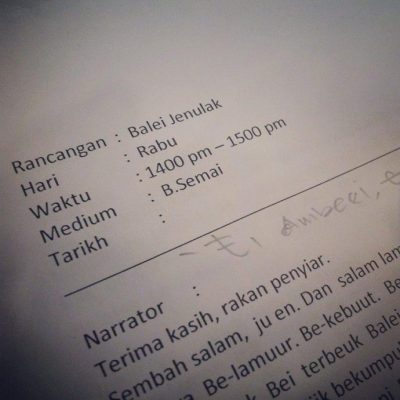 Rancangan : Balei Jenulak
Hari : Rabu
Waktu : 1400 pm – 1500 pm
Medium : B.Semai
Tarikh :
Ambeei,
Narrator :
Terima kasih, rakan penyiar.
Sembah salam, ju en. Dan salam lam
Be-lamuur. Be-kebuut. Be
Bei terbeuk Balei
bekumpul